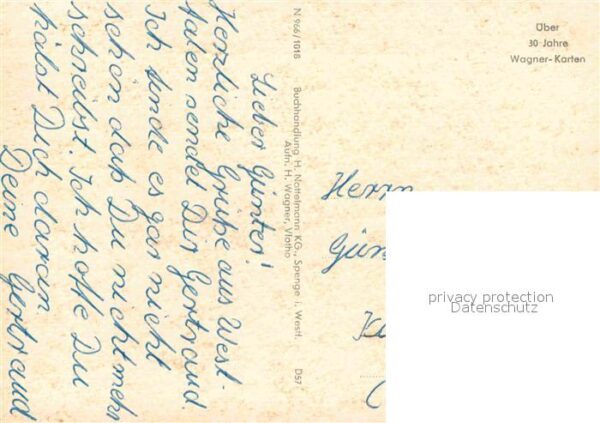 Lieber Günter!
Herzliche Grüße aus West-
falen sendet Dir Gertraud.
Ich finde es gar nicht
schön daß Du nicht mehr
schreibst. Ich hoffe Du
hälst Dich daran
Deine Gertraud
N 966/1018 Buchhandlung H. Nottelmann KG., Spenge i. Westf. D57
Aufn. H. Wagner, Vlotho
Über
30 Jahre
Wagner-Karten
Herrn
privacy protection
Datenschutz